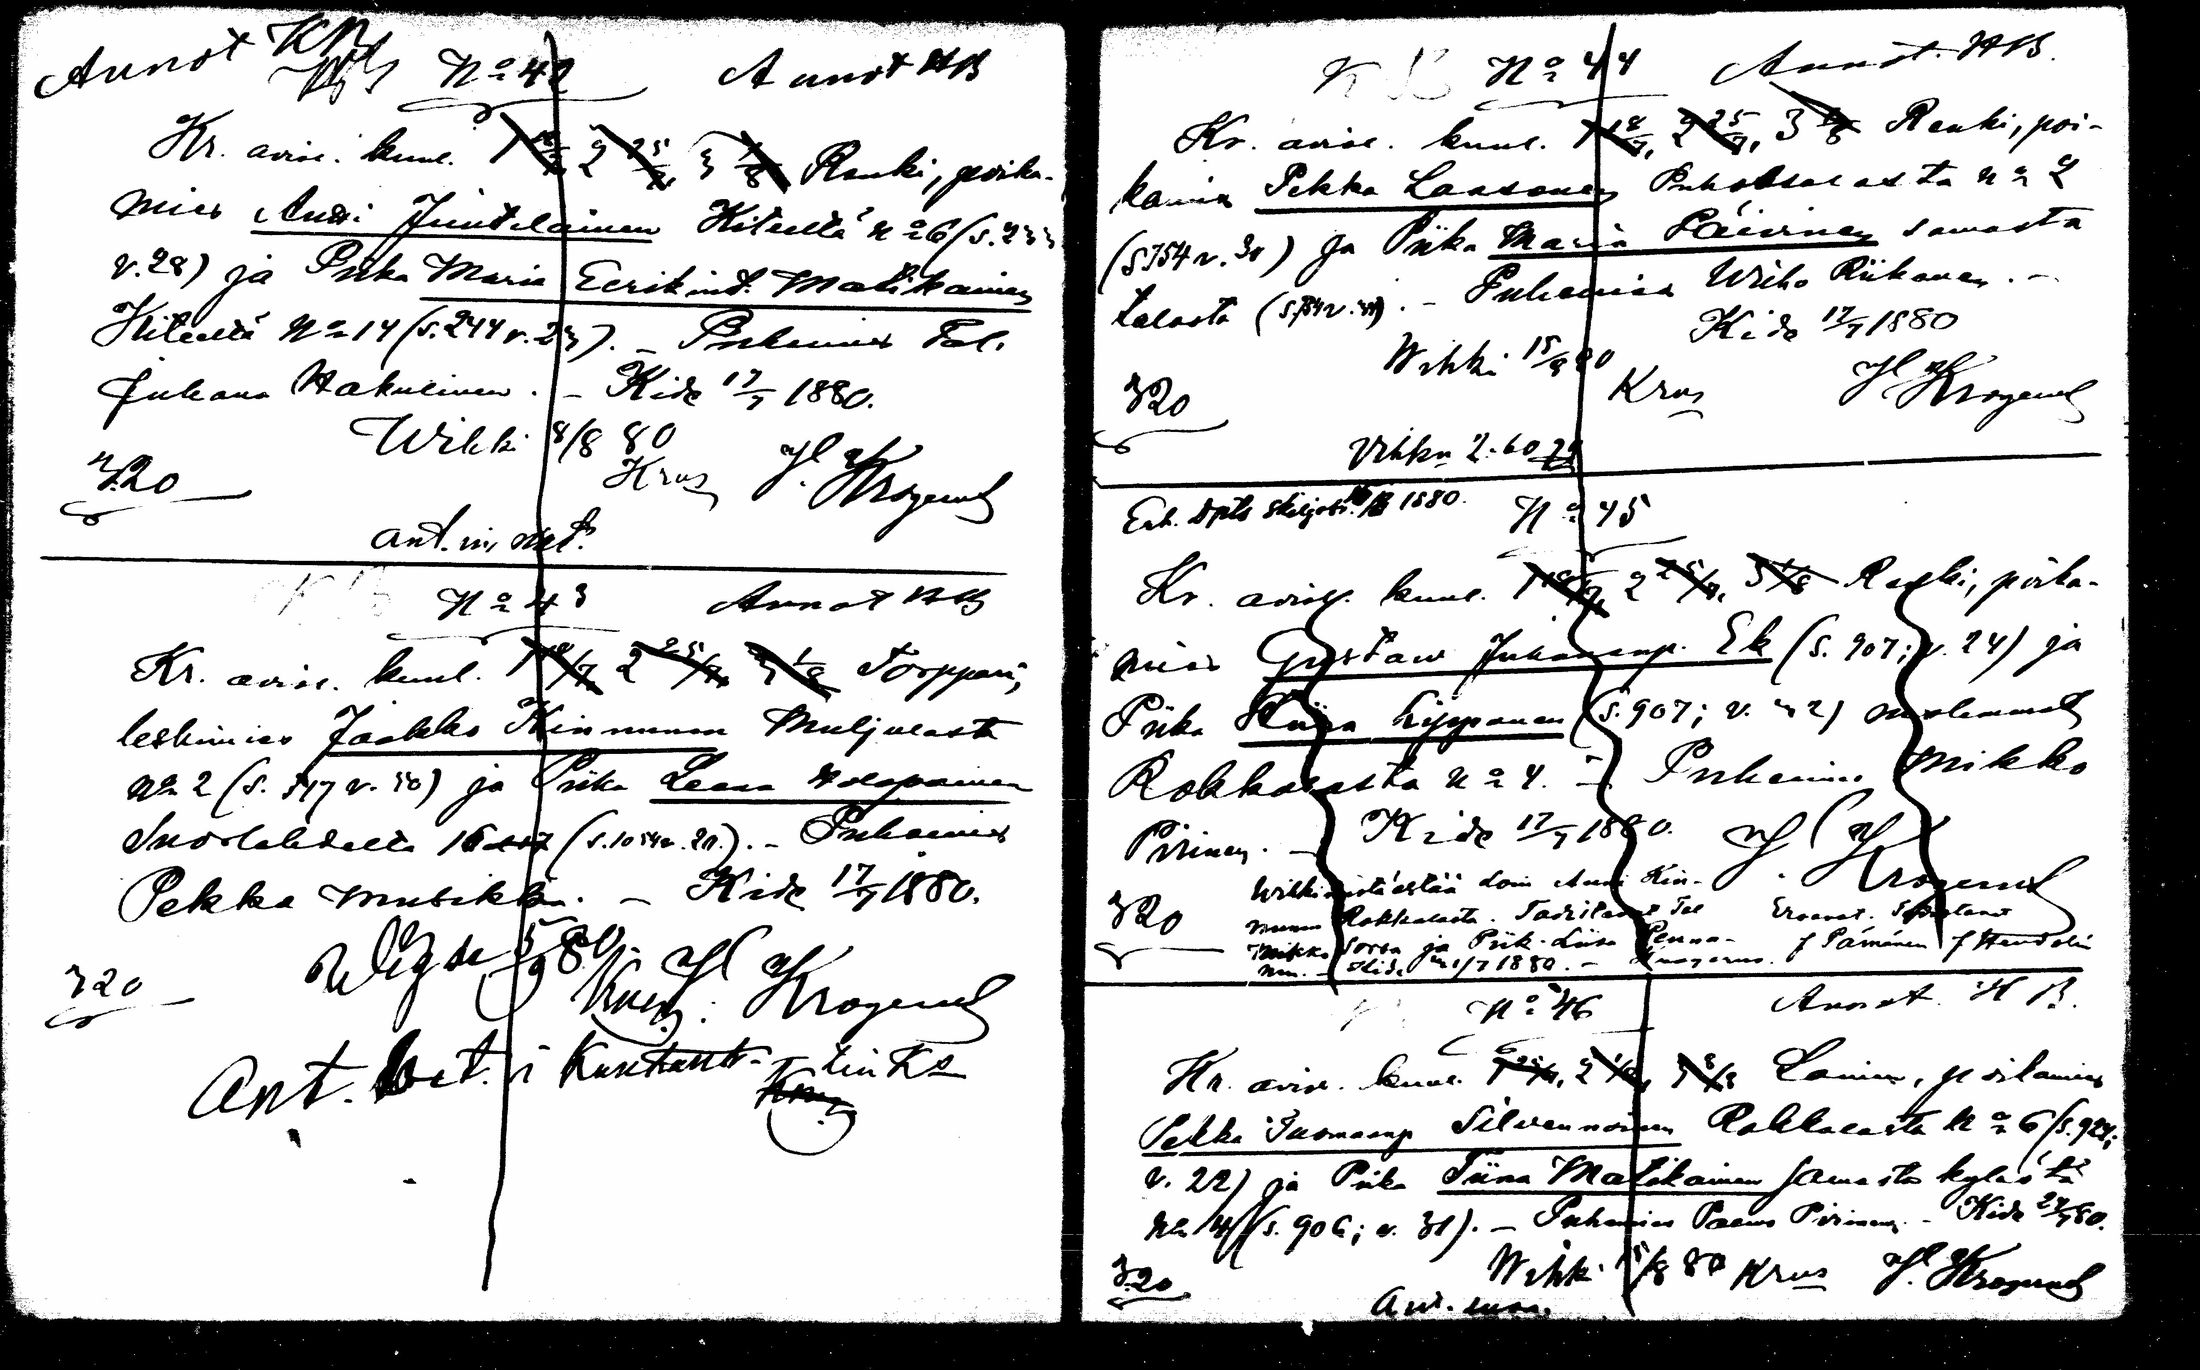 Annot KB
No 42 Annot HB
Kr. aviol. kuul. 1 18/7, 2 25/7, 3 1/8 Renki, poika-
mies Antti Juntulainen Kiteeltä No 6 (s. 233
v. 28) ja Piika Maria Eerikint. Matikainen
Kiteeltä No 14 (s. 244 v. 23). – Puhemies Tal.
Juhana Hakulinen. – Kide 17/7 1880.
Wihki 8/8 80
Krus H. Krogerus
3.20
ant.
No 43 Annot HB
Kr. aviol. kuul. 1 18/7 2 25/7 3 1/8 Torppari,
leskimies Jaakko Kinnunen Muljulasta
No 2 (s. 517 v. 50) ja Piika Leena Holopainen
Suorlahdelta 16 (s. 1054 v. 21.). – Puhemies
Pekka Musikka. – Kide 17/7 1880.
H Krogerus
320
Ant. bet. i
No 44 Annot. HB.
Kr. aviol. kuul. 1 18/7, 2 25/7, 3 1/8 Renki, poi-
kamies Pekka Laasonen Puhossalosta No 2
(s 754 v. 31) ja Piika Maria Päivinen samasta
talosta (s. 754 v. ). – Puhemies Wilho Riikonen. –
Kide 17/7 1880
Wihki 15/8 80
Krus H Krogerus
320
Vihku 2.60
Enl. Dpts Skiljobr. 1880. No 45
Kr. aviol. kuul. 1 18/7, 2 25/7, 3 1/8 Renki, poika-
mies Gustaw Juhananp. Ek (s. 907; v. 24) ja
Piika Liisa Lipponen (s. 907; v. 32) molemmat
Rokkalasta No 4. – Puhemies Mikko
Pirinen. – Kide 17/7 1880. H Krogerus
Wihkimistä estää Lois Anni Kin-
nunen Rokkalasta. Todistavat Tal
Mikko Sorsa ja Piik. Liisa Penna-
nen. – Kide 1880. – Krogerus.
320
No 46 Annot. HB.
Kr. aviol. kuul. 1 25/7, 2 1/8, 3 8/8 Loinen, poikamies
Pekka Tuomaanp Silvennoinen Rokkalasta No 6 (s. 924;
v. 22) ja Piika Tiina Matikainen samasta kylästä
No 4 (s. 906; v. 31). – Puhemies Paavo Pirinen. – Kide 24/7 80.
Wihki 15/8 80 Krus H. Krogerus
3.20